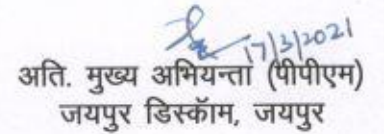 17/3/2021
अति. मुख्य अभियन्ता (पीपीएम)
जयपुर डिस्कॉम, जयपुर